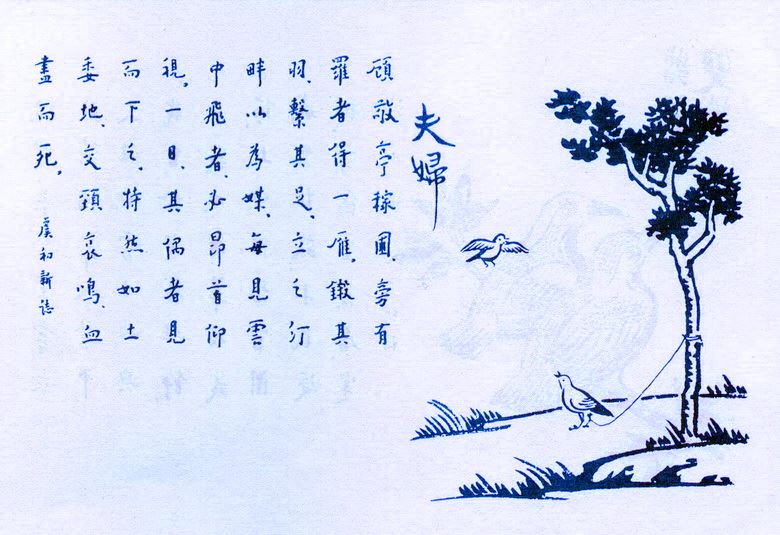 夫婦
顧敬亭稼圃、旁有
羅者得一雁。鎩其
羽、繫其足、立之汀
畔以為媒。每見雲
中飛者、必昂首仰
視。一日、其偶者見
而下之、特然如土
委地、交頸哀鳴、血
盡而死。
虞初新誌